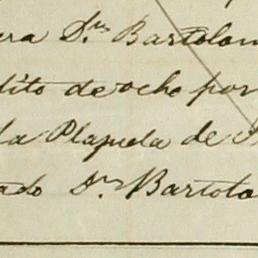 era Dn. Bartolom
dito de ocho por
la Plazuela de
tado Dn. Bartolo